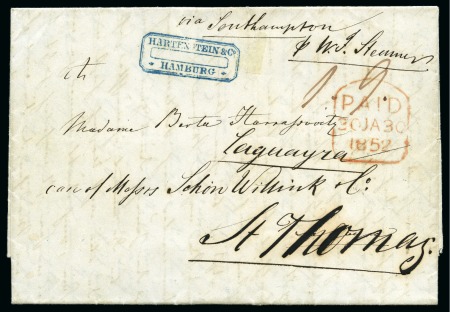 via Southampton
p W. I. Steamer
HARTENSTEIN & Co
HAMBURG
PAID
30 JA 30
1852
Madame Berta Harrassowitz
Laguayra
care of Messrs Schön Willink & Co.
St Thomas.